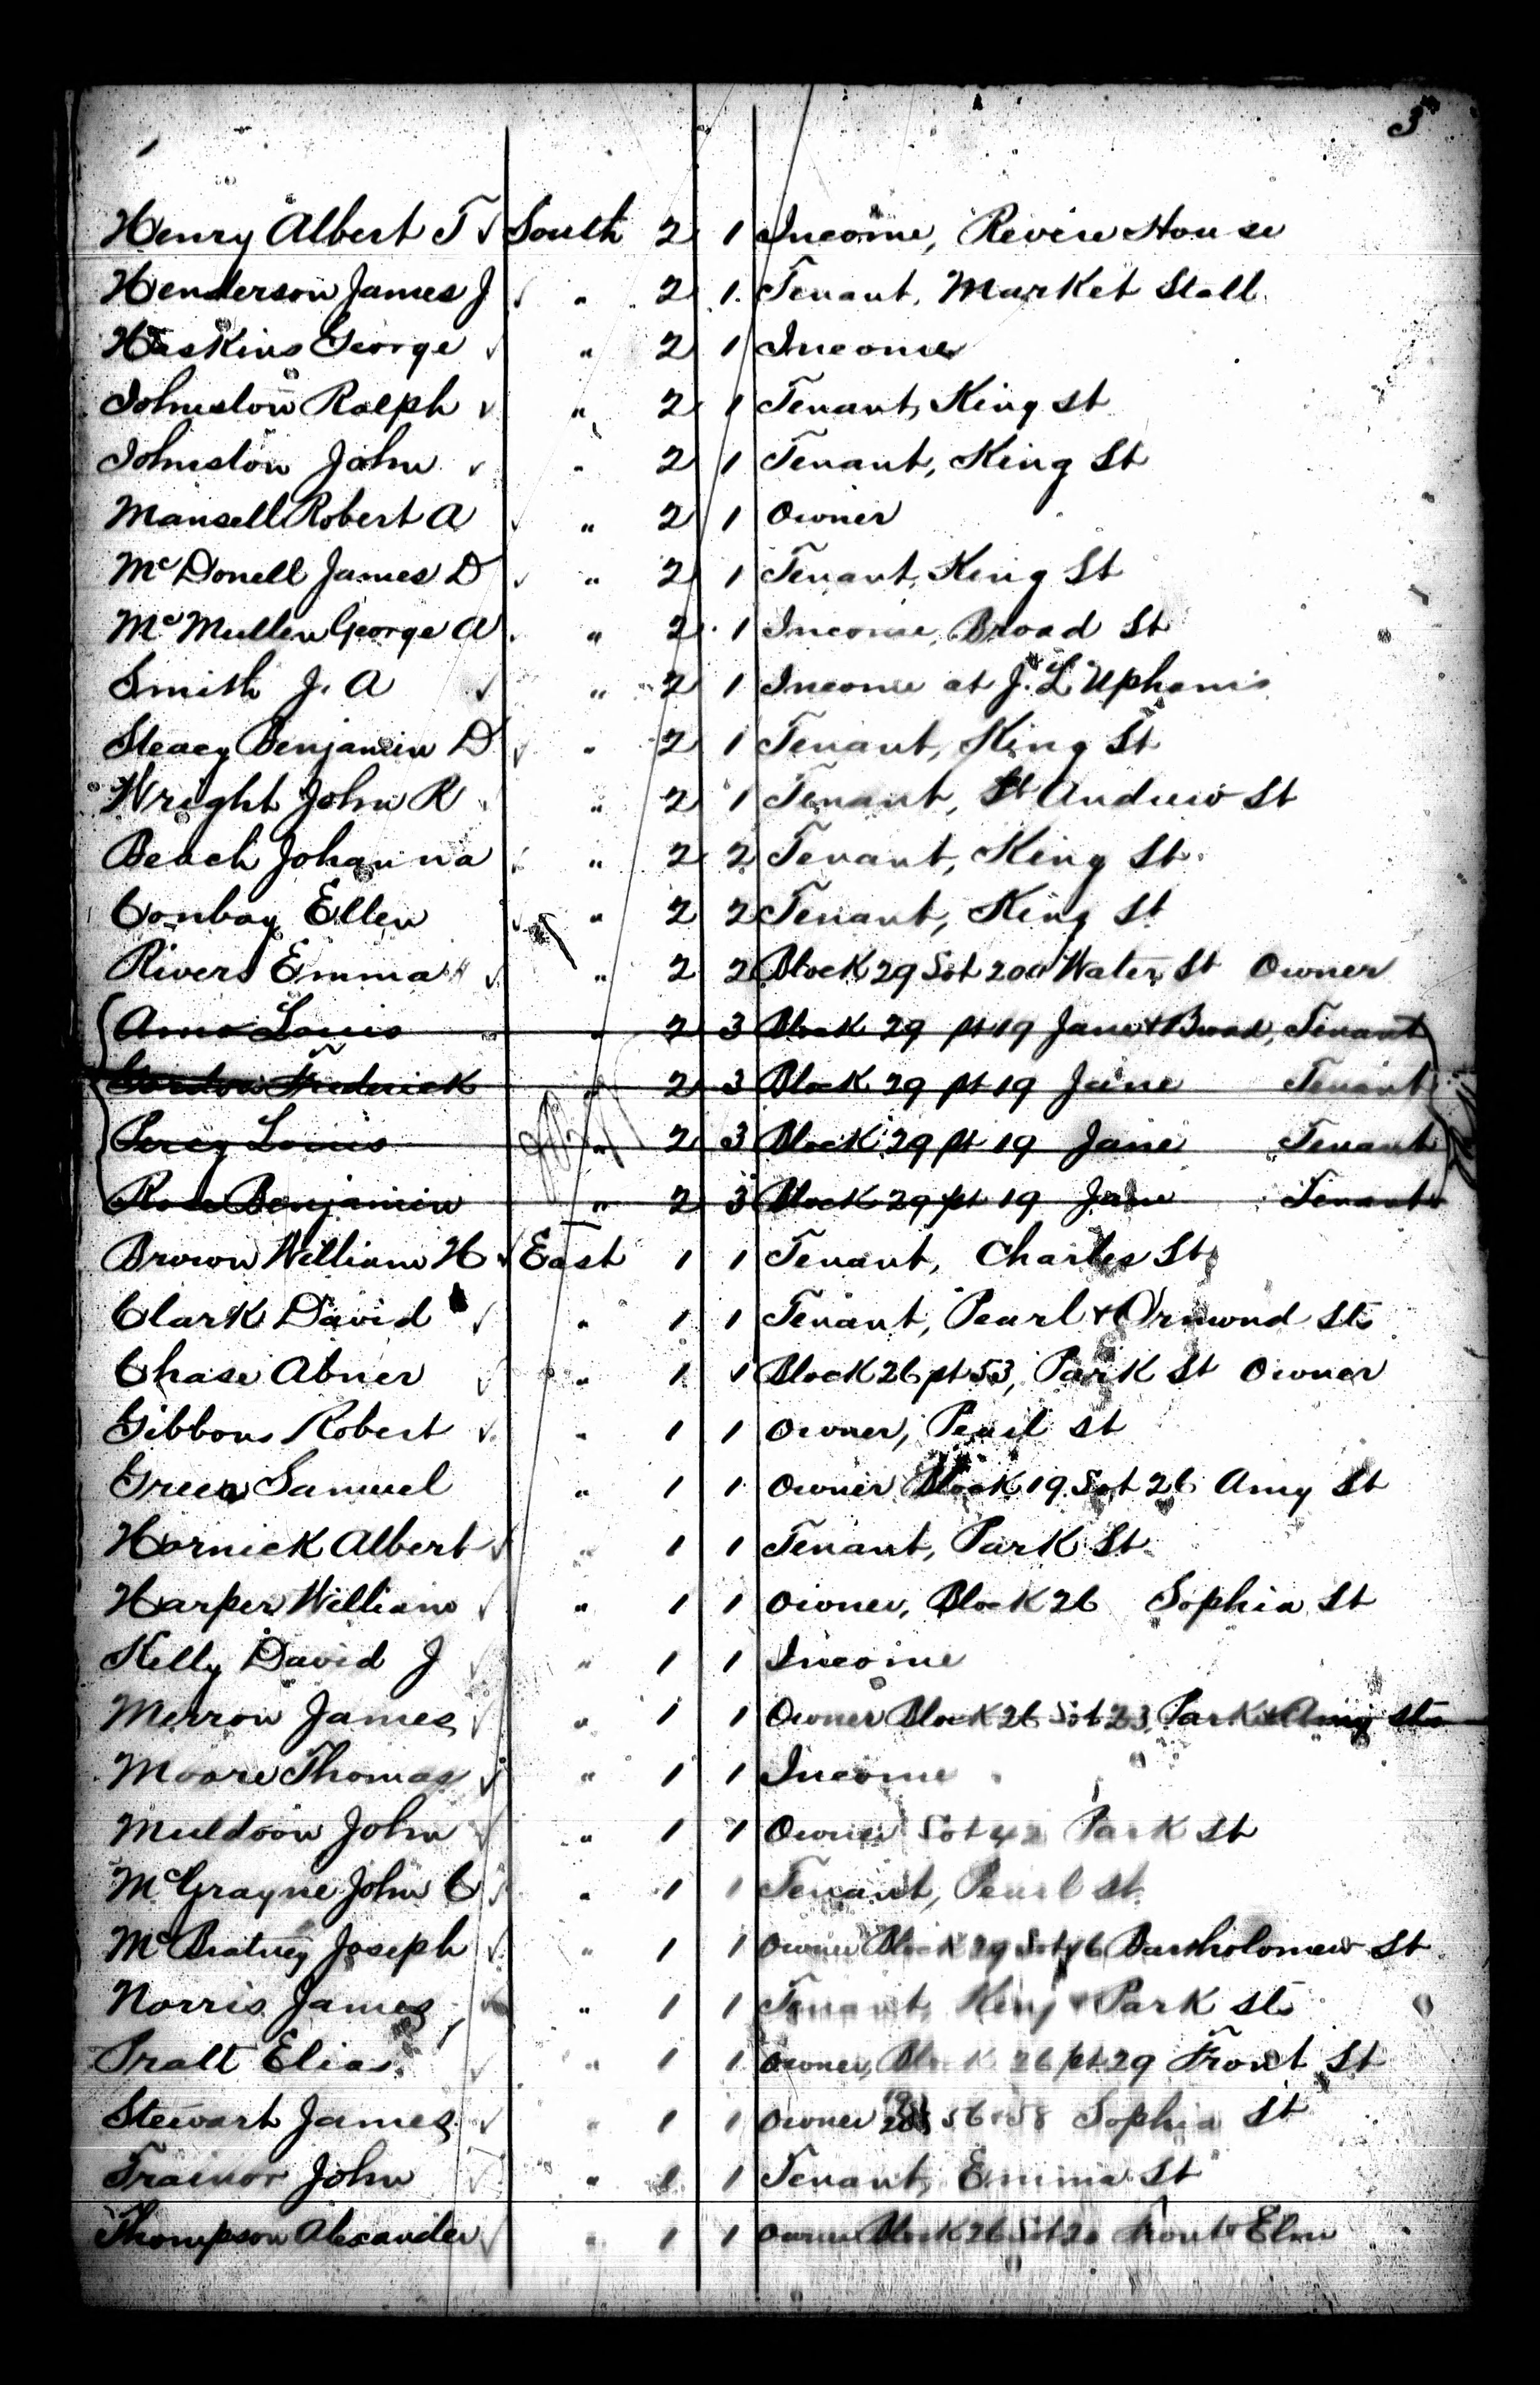 3
Henry Albert T South 2 1 Income, Revere House
Henderson James J " 2 1 Tenant, Market Stall
Haskins George " 2 1 Income
Johnston Ralph " 2 1 Tenant, King St
Johnston John " 2 1 Tenant, King St
Mansell Robert A " 2 1 Owner
McDonell James D " 2 1 Tenant, King St
McMullen George A " 2 1 Income, Broad St
Smith J. A " 2 1 Income at J. L Upham's
Steacy Benjamin D " 2 1 Tenant, King St
Wright John R " 2 1 Tenant, St Andrew St
Beach Johanna " 2 2 Tenant, King St
Conboy Ellen " 2 2 Tenant, King St
Rivers Emma " 2 2 Block 29 Lot 20 Water St Owner
Louis " 2 3 Block 29 pt 19 Jane & Broad, Tenant
Gordon Frederick " 2 3 Block 29 pt 19 Jane Tenant
Percy Louis " 2 3 Block 29 pt 19 Jane Tenant
Rose Benjamin " 2 3 Block 29 pt 19 Jane Tenant
Brown William H East 1 1 Tenant, Charles St
Clark David " 1 1 Tenant, Pearl & Ormond Sts
Chase Abner " 1 1 Block 26 pt 53, Park St Owner
Gibbons Robert " 1 1 Owner, Pearl St
Green Samuel " 1 1 Owner Block 19 Lot 26 Amy St
Hornick Albert " 1 1 Tenant, Park St
Harper William " 1 1 Owner, Block 26 Sophia St
Kelly David J " 1 1 Income
Merron James " 1 1 Owner Block 26 Lot 23, Park & Amy Sts
Moore Thomas " 1 1 Income
Muldoon John " 1 1 Owner Lot 42 Park St
McGrayne John C " 1 1 Tenant, Pearl St
McBratney Joseph " 1 1 Owner Block 29 Lot Bartholomew St
Norris James " 1 1 Tenant, King & Park Sts
Pratt Elias " 1 1 Owner, Block 26 pt 29 Front St
Stewart James " 1 1 Owner 56 58 Sophia St
Trainor John " 1 1 Tenant, Emma St
Thompson Alexander " 1 1 Owner Block 26 Lot 20 Front & Elm